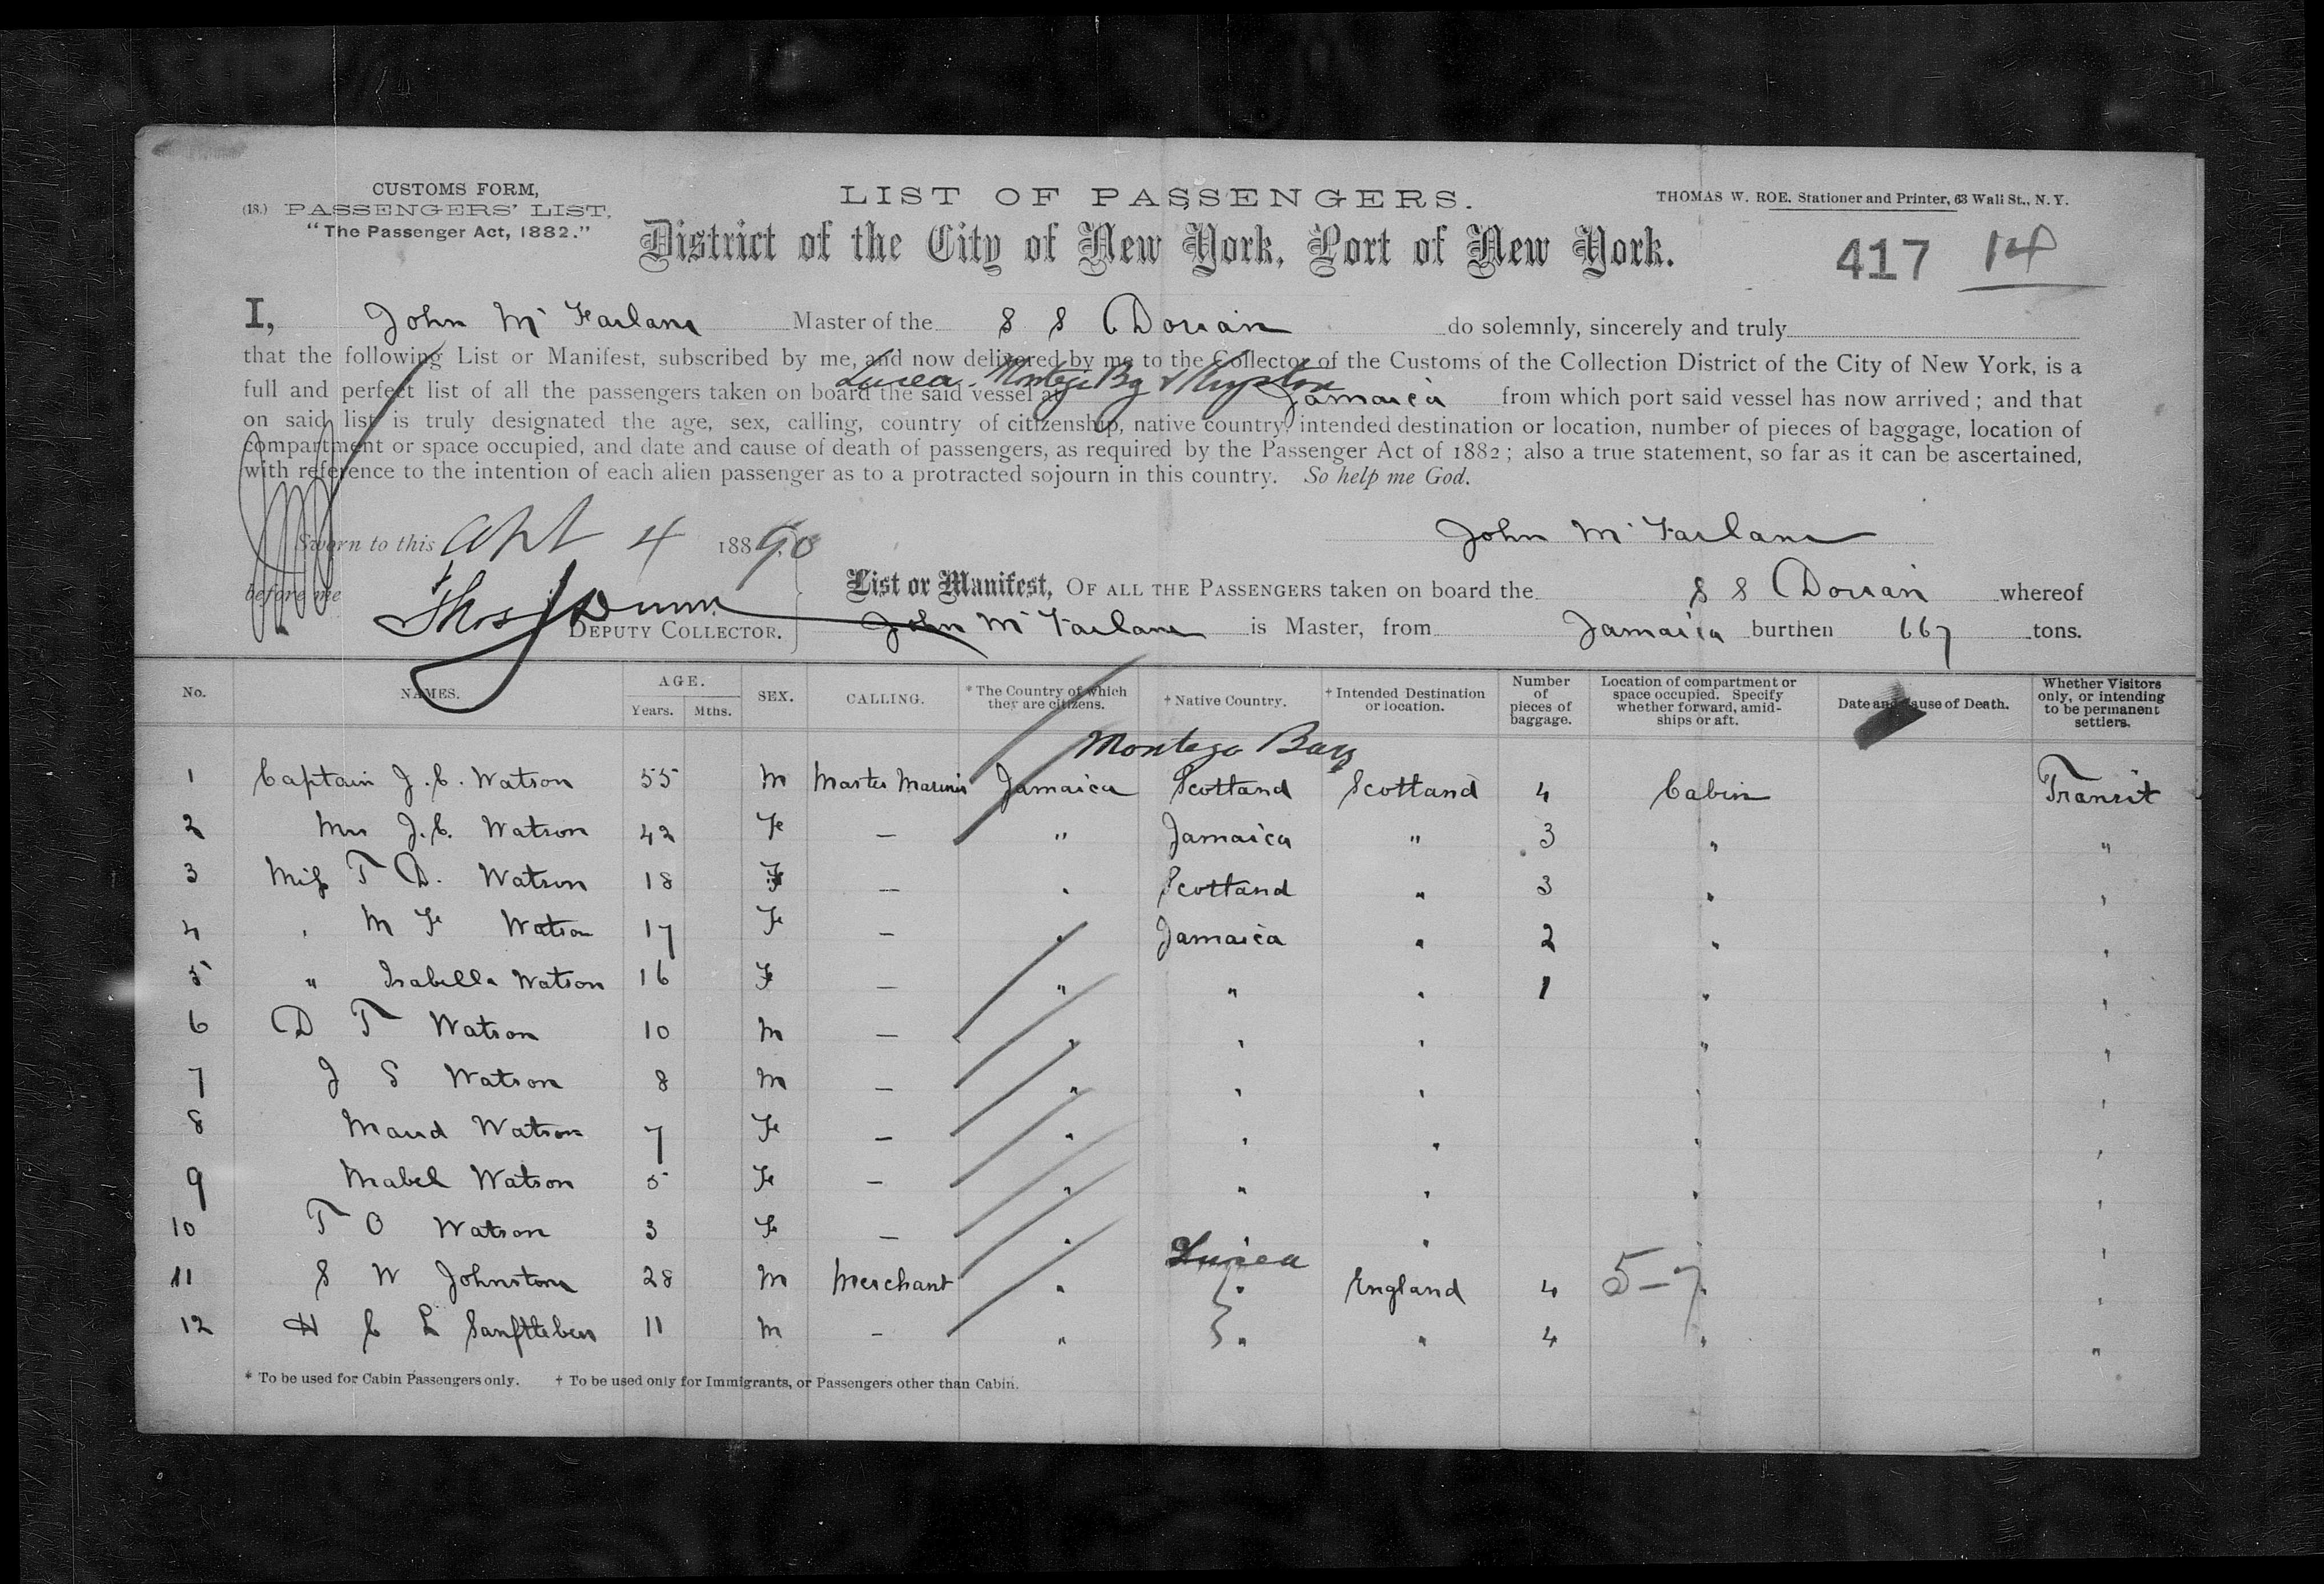 CUSTOMS FORM,
(18.) PASSENGERS' LIST,
"The Passenger Act, 1882."
LIST OF PASSENGERS.
THOMAS W. ROE, Stationer and Printer, 63 Wall St., N.Y.
District of the City of New York, Port of New York.
417 14
I, John McFarlane Master of the S S Dorian do solemnly, sincerely and truly
that the following List or Manifest, subscribed by me, and now delivered by me to the Collector of the Customs of the Collection District of the City of New York, is a
Lucea - Montego Bay & Kingston
full and perfect list of all the passengers taken on board the said vessel at Jamaica from which port said vessel has now arrived; and that
on said list is truly designated the age, sex, calling, country of citizenship, native country, intended destination or location, number of pieces of baggage, location of
compartment or space occupied, and date and cause of death of passengers, as required by the Passenger Act of 1882; also a true statement, so far as it can be ascertained,
with reference to the intention of each alien passenger as to a protracted sojourn in this country. So help me God.
John McFarlane
Sworn to this Apl 4 188 90
before me Thos Dunn
DEPUTY COLLECTOR.
List or Manifest, OF ALL THE PASSENGERS taken on board the S S Dorian whereof
John McFarlane is Master, from Jamaica burthen 667 tons.
No. NAMES. AGE. Years. Mths. SEX. CALLING. * The Country of which they are citizens. † Native Country. † Intended Destination or location. Number of pieces of baggage. Location of compartment or space occupied. Specify whether forward, amidships or aft. Date and Cause of Death. Whether Visitors only, or intending to be permanent settlers.
Montego Bay
1 Captain J. C. Watson 55 M Master Mariner Jamaica Scotland Scotland 4 Cabin Transit
2 Mrs J. C. Watson 42 Fe — " Jamaica " 3 " "
3 Miss T D. Watson 18 F — " Scotland " 3 " "
4 " M F Watson 17 Fe — " Jamaica " 2 " "
5 " Isabella Watson 16 F — " " " 1 " "
6 D T Watson 10 M — " " " " "
7 J S Watson 8 M — " " " " "
8 Maud Watson 7 Fe — " " " " "
9 Mabel Watson 5 Fe — " " " " "
10 T O Watson 3 F — " " " "
Lucea
11 S W Johnston 28 M Merchant " " England 4 5-7 " "
12 H C L Sanftleben 11 M - " " " 4 " "
* To be used for Cabin Passengers only. † To be used only for Immigrants, or Passengers other than Cabin.